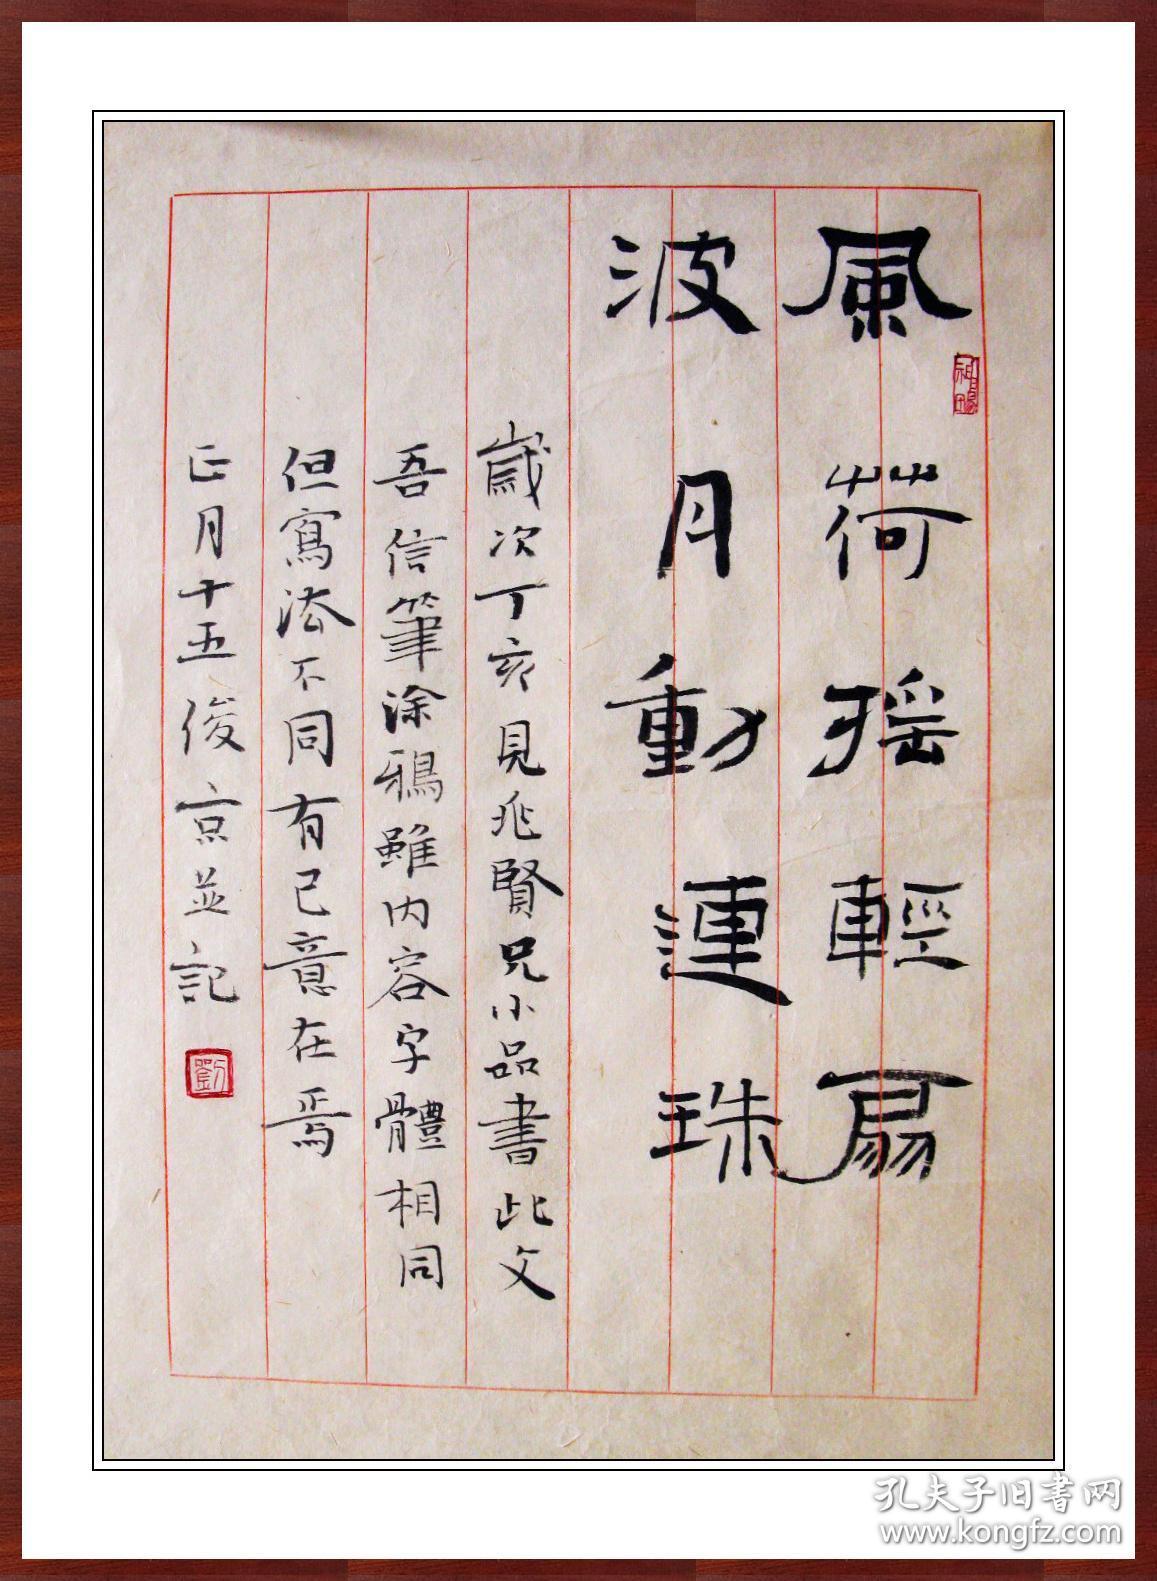 風荷摇輕扇
波月動連珠
歲次丁亥見兆賢兄小品書此文
吾信筆涂鴉雖内容字體相同
但寫法不同有已意在焉
正月十五俊京並記
劉
孔夫子旧書网
www.kongfz.com